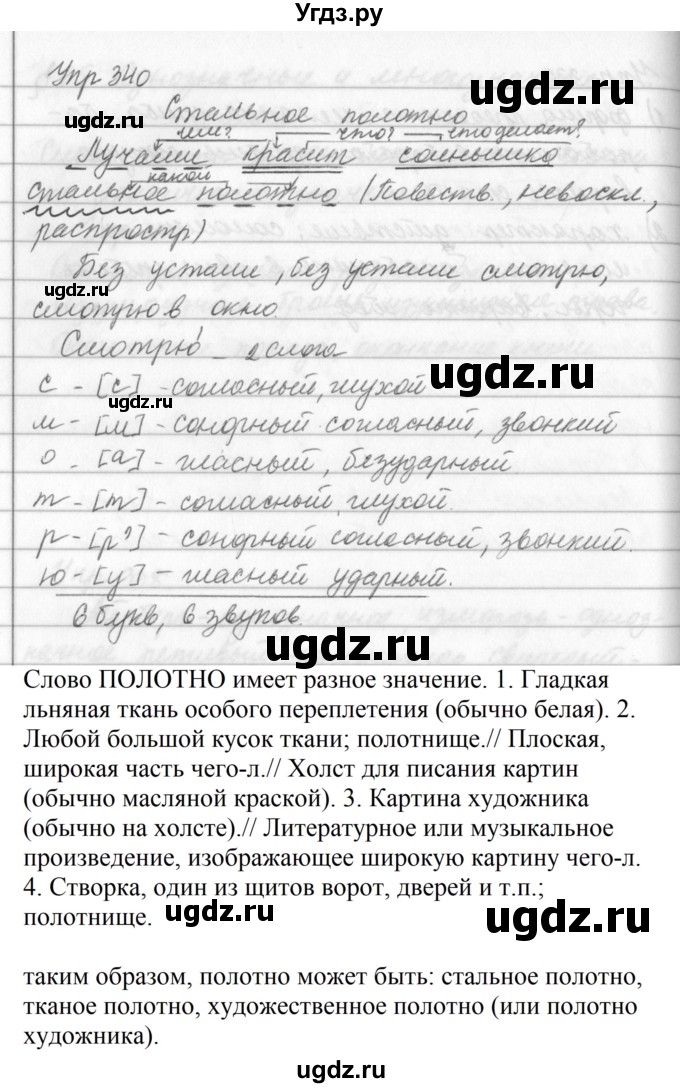 Угдз.ру
Упр 340
Стальное полотно
чем? что? что делает?
Лучами красит солнышко
какой
стальное полотно (Повеств., невоскл.,
распростр)
Без устали, без устали смотрю,
ugdz.ru
смотрю в окно.
ugdz.ru
Смотрю - 2 слога
с - [с] - согласный, глухой
ugdz.ru
ugdz.ru
м - [м] - сонорный согласный, звонкий
о - [а] - гласный, безударный
т - [т] - согласный глухой.
р - [р'] - сонорный согласный, звонкий.
ю - [у] - гласный ударный.
6 букв, 6 звуков.
ugdz.ru
Слово ПОЛОТНО имеет разное значение. 1. Гладкая
льняная ткань особого переплетения (обычно белая). 2.
Любой большой кусок ткани; полотнище.// Плоская,
широкая часть чего-л.// Холст для писания картин
(обычно масляной краской). 3. Картина художника
(обычно на холсте).// Литературное или музыкальное
произведение, изображающее широкую картину чего-л.
4. Створка, один из щитов ворот, дверей и т.п.;
полотнище.
ugdz.ru
ugdz.ru
таким образом, полотно может быть: стальное полотно,
тканое полотно, художественное полотно (или полотно
художника).
ugdz.ru